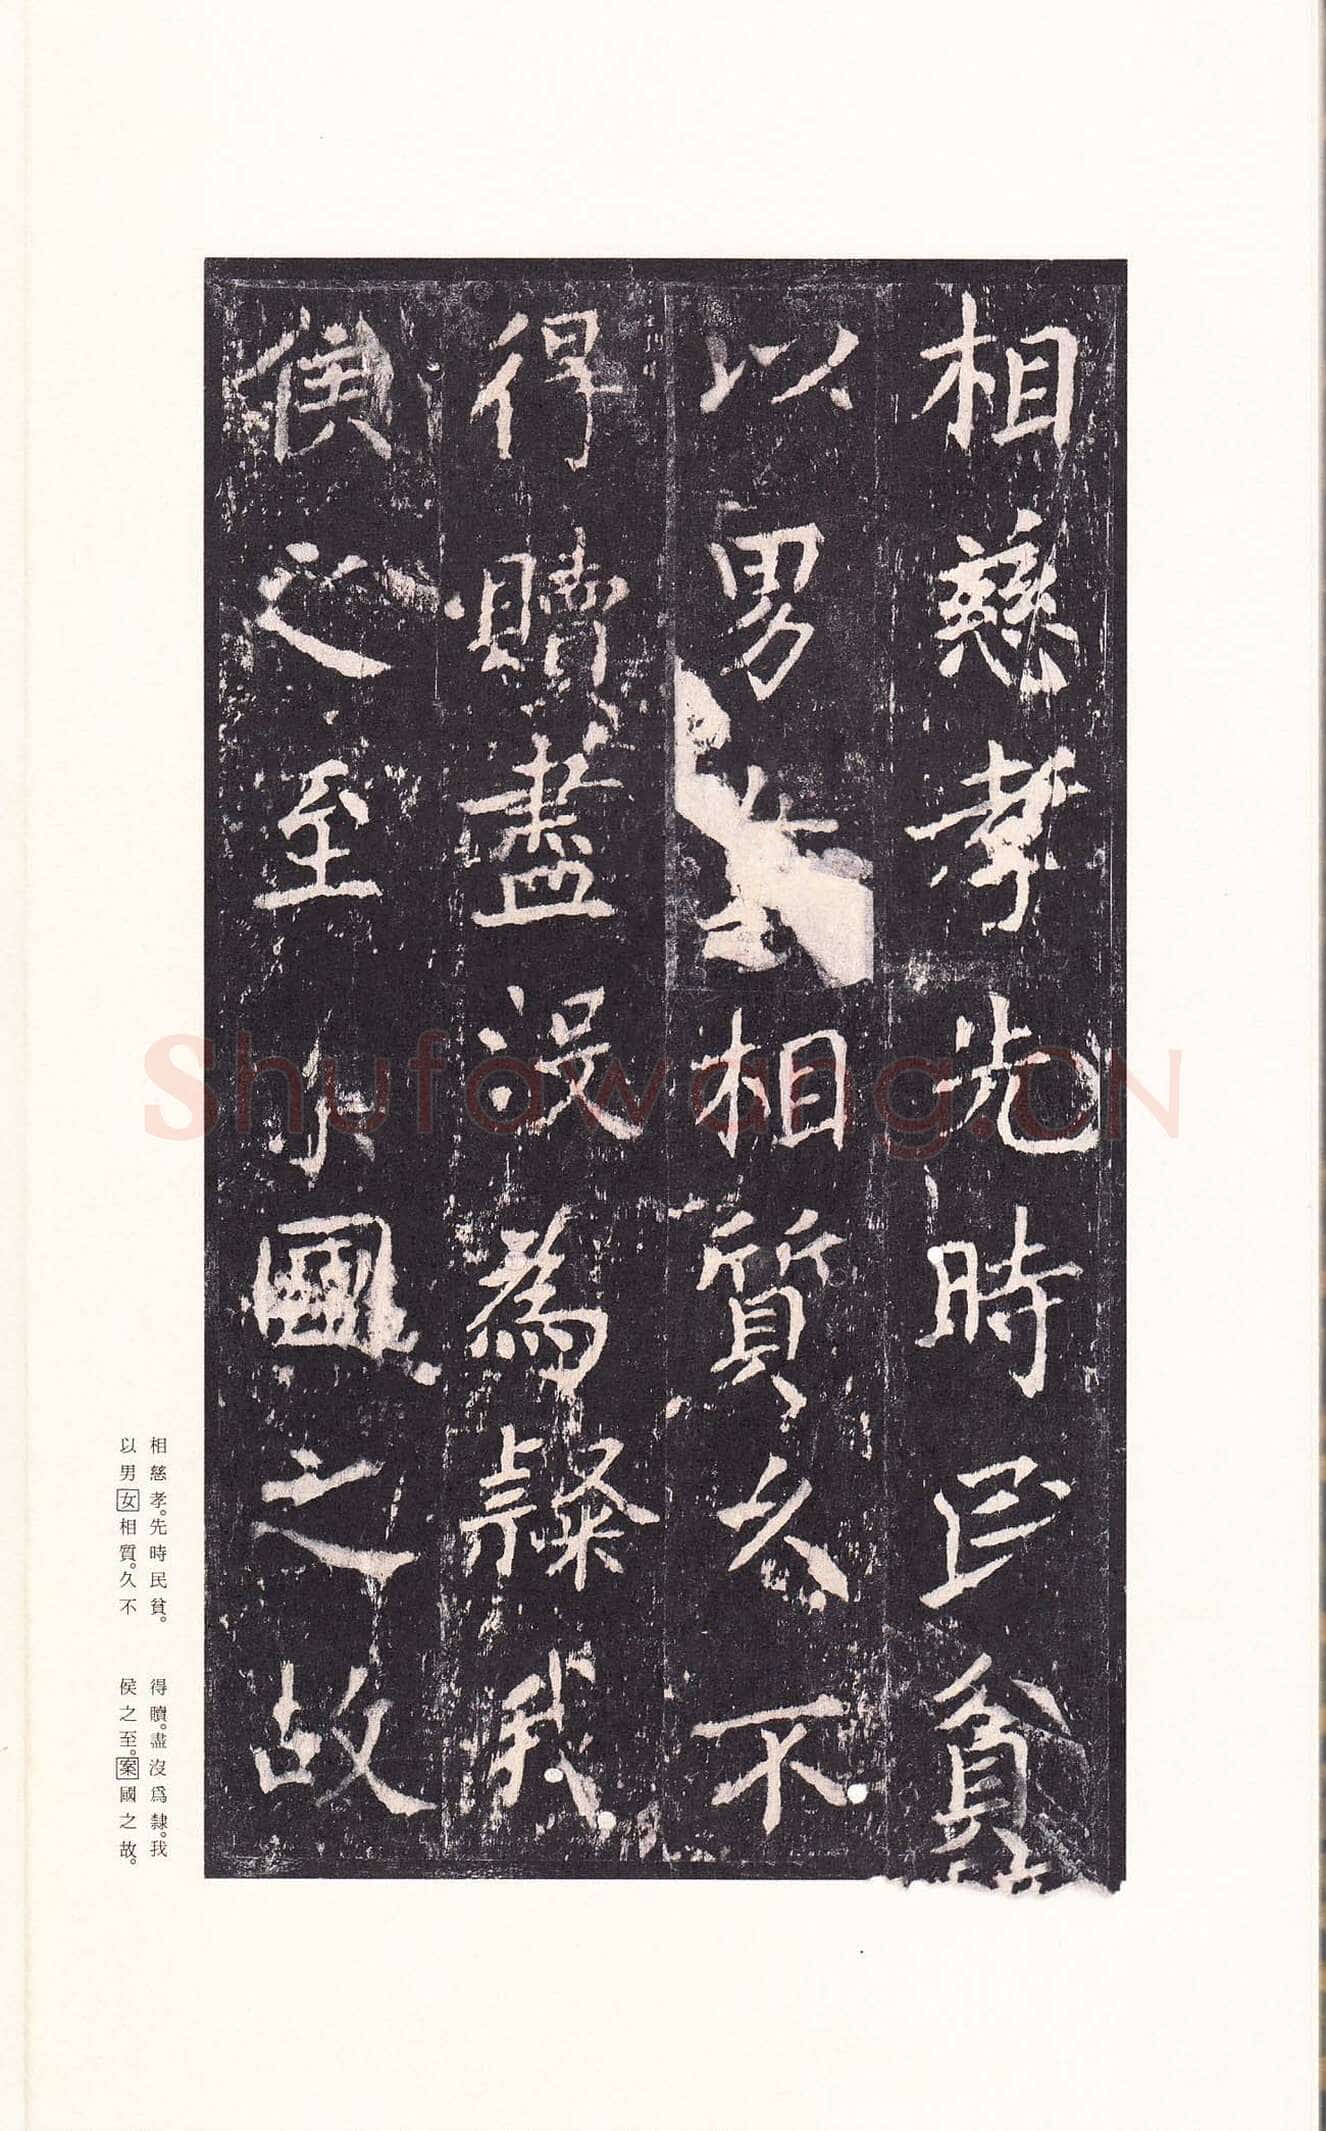 相慈孝先時民貧
以男女相質久不
得贖盡沒為隸我
侯之至
國之故
相慈孝。先時民貧。
以男女相質。久不
得贖。盡沒爲隸。我
侯之至。案國之故。
Shufawang.CN